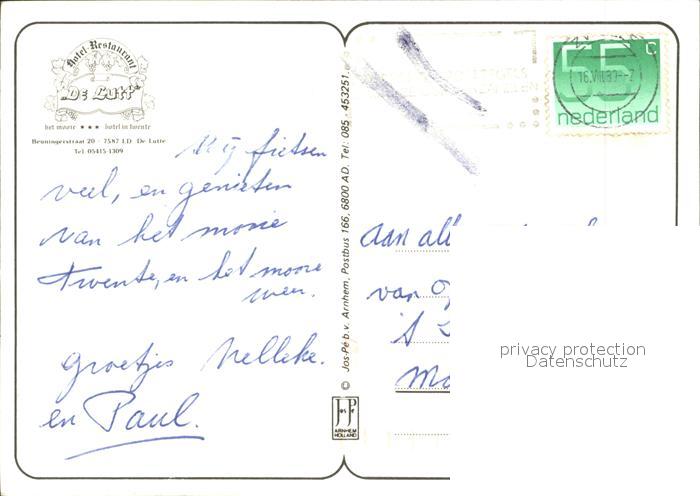 Hotel-Restaurant
"De Lutt"
het mooie *** hotel in twente
Beuningerstraat 20 - 7587 LD De Lutte
Tel. 05415-1309
Wij fietsen
veel, en genieten
van het mooie
Twente, en het mooie
weer.
groetjes Nelleke.
en Paul.
© Jos-Pé b.v. Arnhem, Postbus 166, 6800 AD. Tel: 085 - 453251.
Jos Pé
ARNHEM
HOLLAND
55 c
nederland
Aan all
van
't
privacy protection
Datenschutz